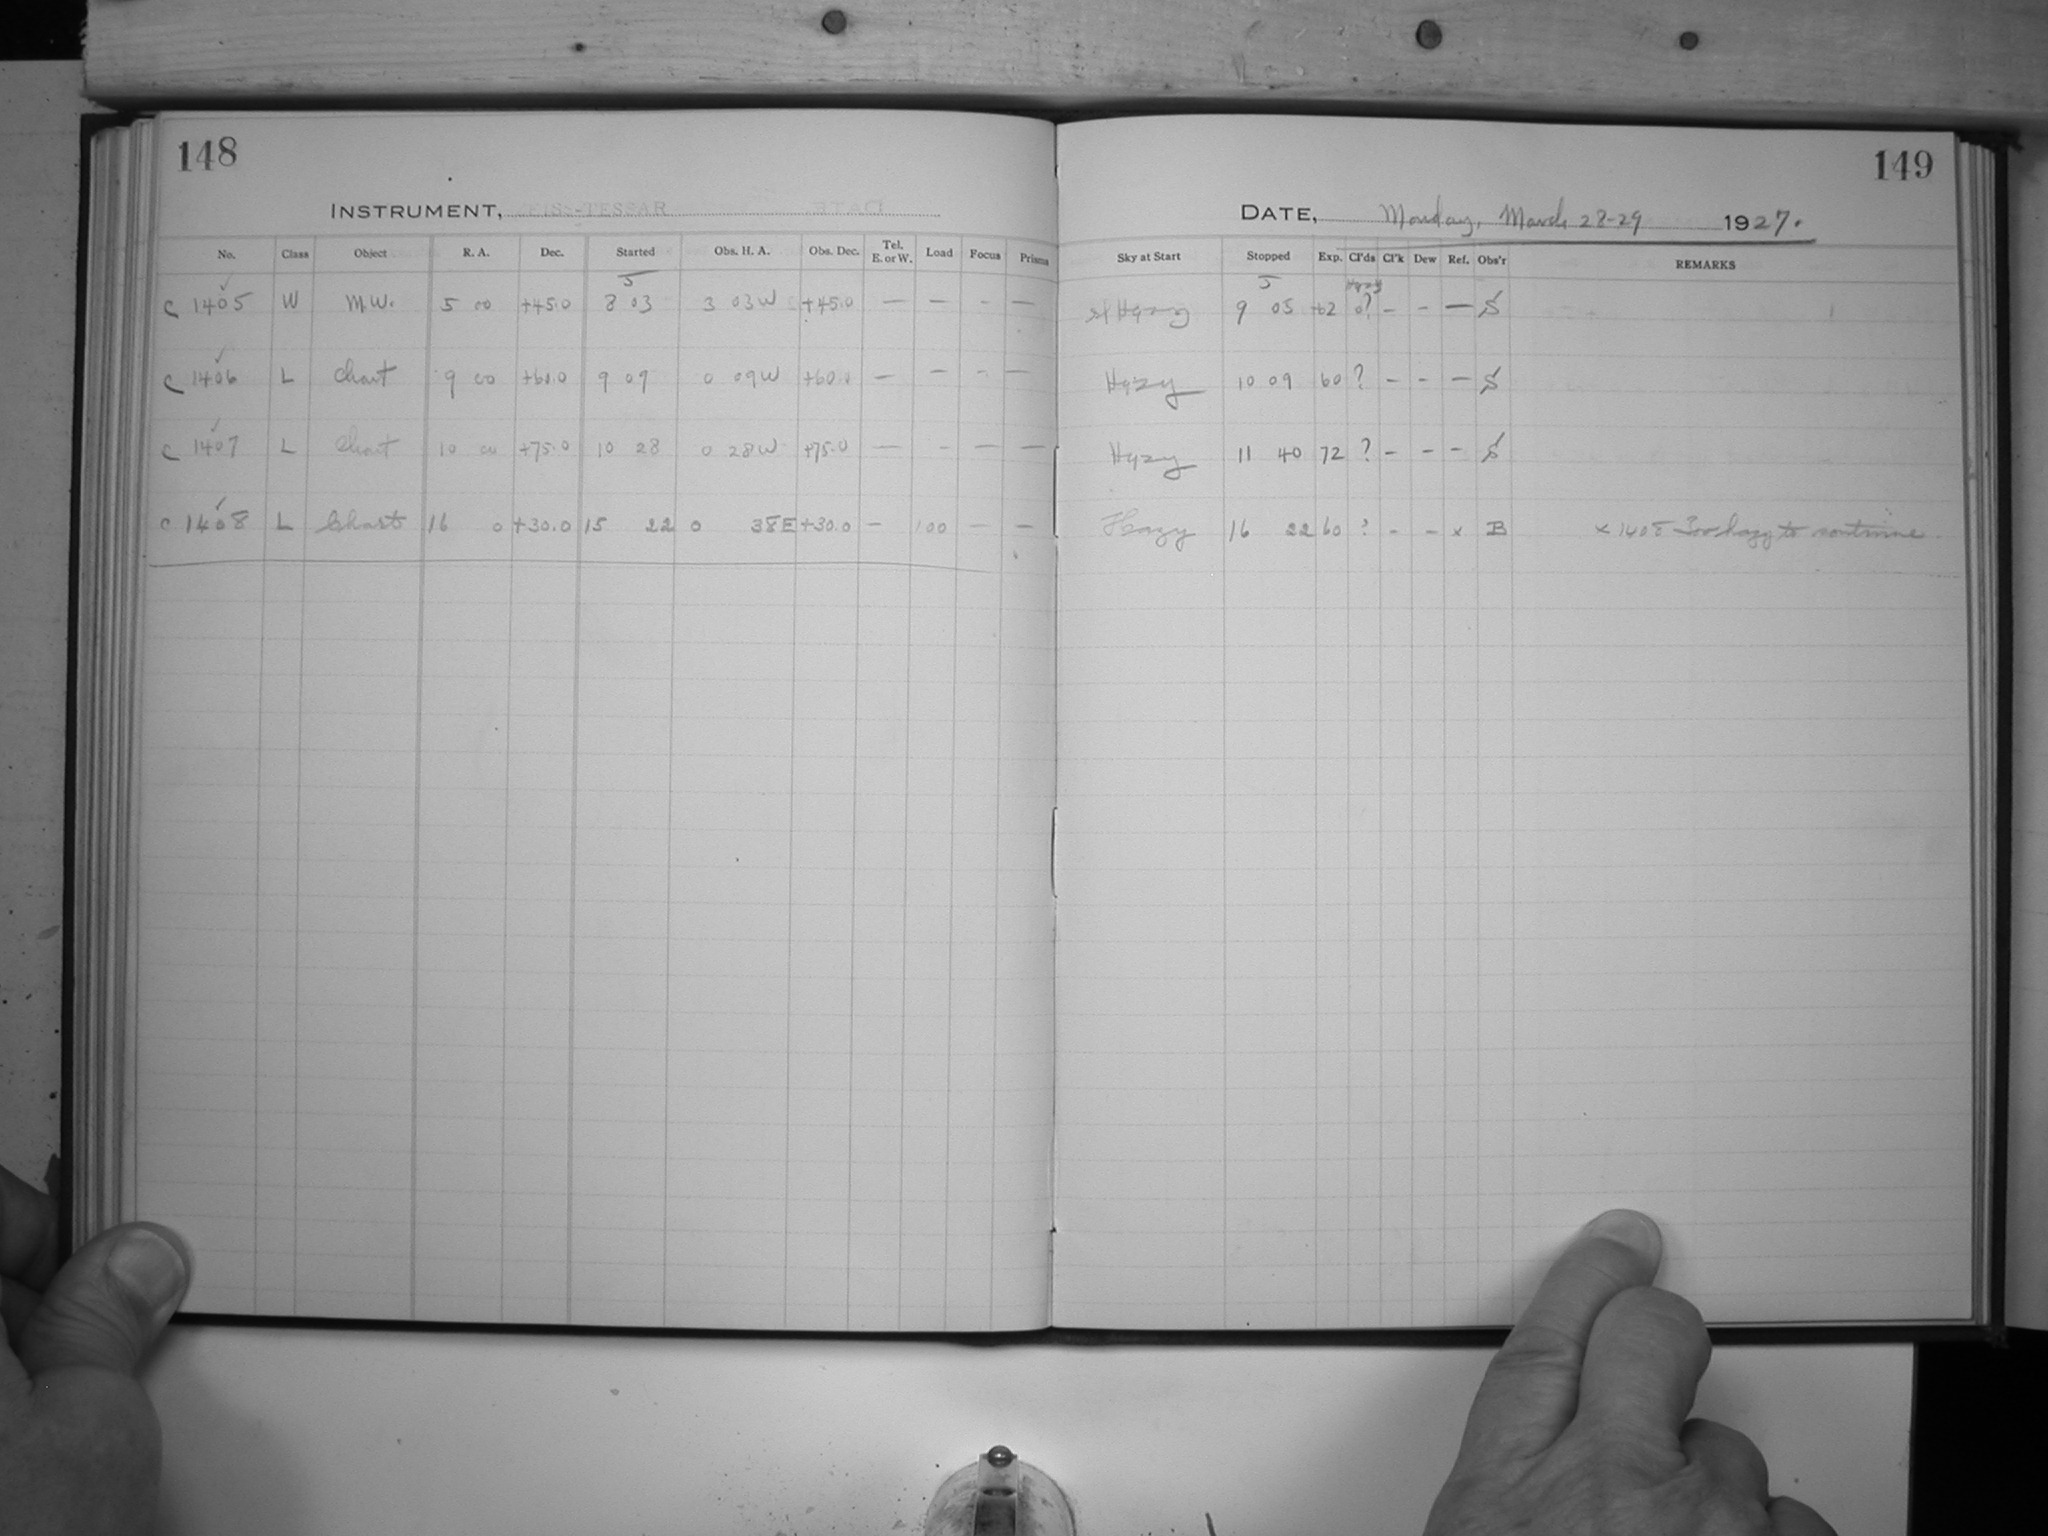 148
INSTRUMENT, ZEISS-TESSAR
No. Class Object R. A. Dec. Started Obs. H. A. Obs. Dec. Tel. E. or W. Load Focus Prisms
5
C 1405 W M.W. 5 00 +45.0 8 03 3 03W +45.0 — — - —
C 1406 L Chart 9 00 +60.0 9 09 0 09W +60.0 — — - —
C 1407 L Chart 10 00 +75.0 10 28 0 28W +75.0 — — — —
C 1408 L Chart 16 0 +30.0 15 22 0 38E +30.0 — 100 — —
149
DATE, Monday, March 28-29 1927.
Sky at Start Stopped Exp. Cl'ds Cl'k Dew Ref. Obs'r REMARKS
5 Hazy
sl Hazy 9 05 62 0? - - — S
Hazy 10 09 60 ? - - — S
Hazy 11 40 72 ? - - - S
Hazy 16 22 60 ? - - x B x 1408 Too hazy to continue.